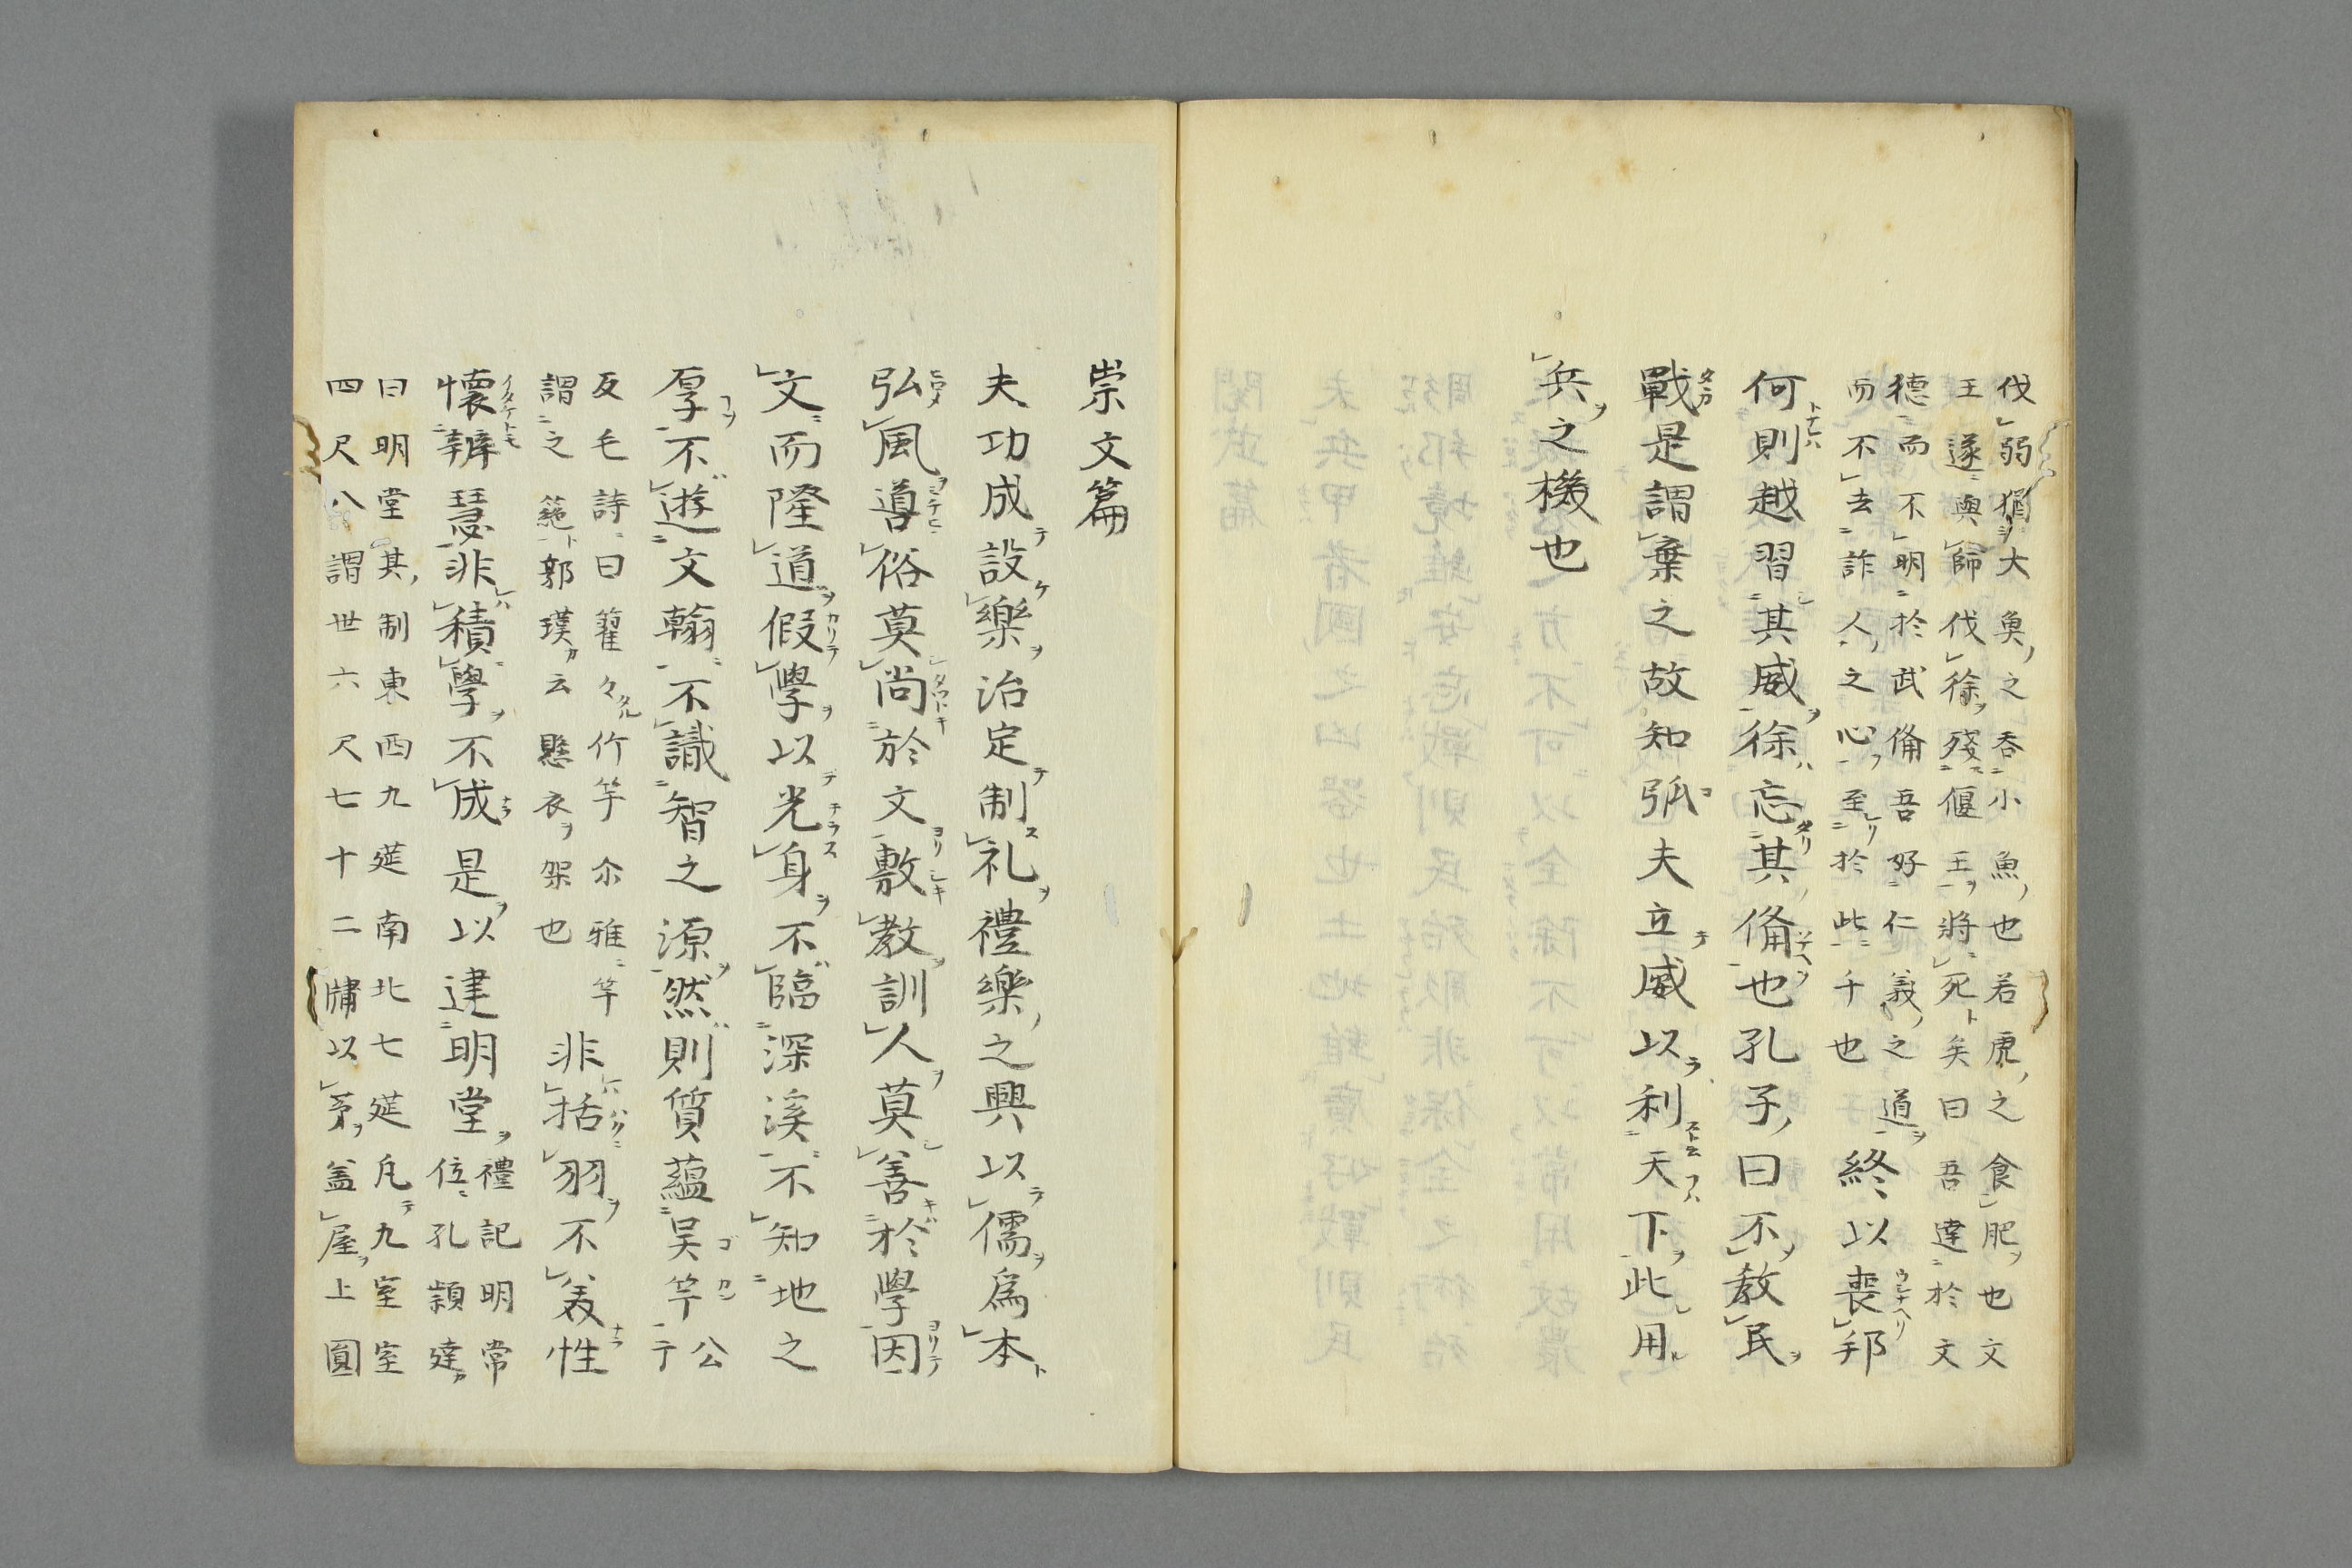 伐弱猶大魚之吞小魚也若虎之食肥也文
王遂興師伐徐殘偃王將死矣曰吾達於文
德而不明於武俻吾好仁義之道
而不去詐人之心至於此千也
終以喪邦
何則越習其威徐忘其俻也孔子曰不教民
戰是謂棄之故知弧夫立威以利天下此用
兵之機也
崇文篇
夫功成設樂治定制礼禮樂之興以儒爲本
弘風導俗莫尚於文敷教訓人莫善於學因
文而隆道假學以光身不臨深溪不知地之
厚不遊文翰不識智之源然則質蘊吴竿公
干
反毛詩曰籊々竹竿尒雅竿
謂之箷郭璞云懸衣架也
非括羽不美性
懷辨慧非積學不成是以建明堂
禮記明常
位孔頴達
曰明堂其制東西九莚南北七莚凡九室室
四尺八謂世六尺七十二牗以茅盖屋上圓